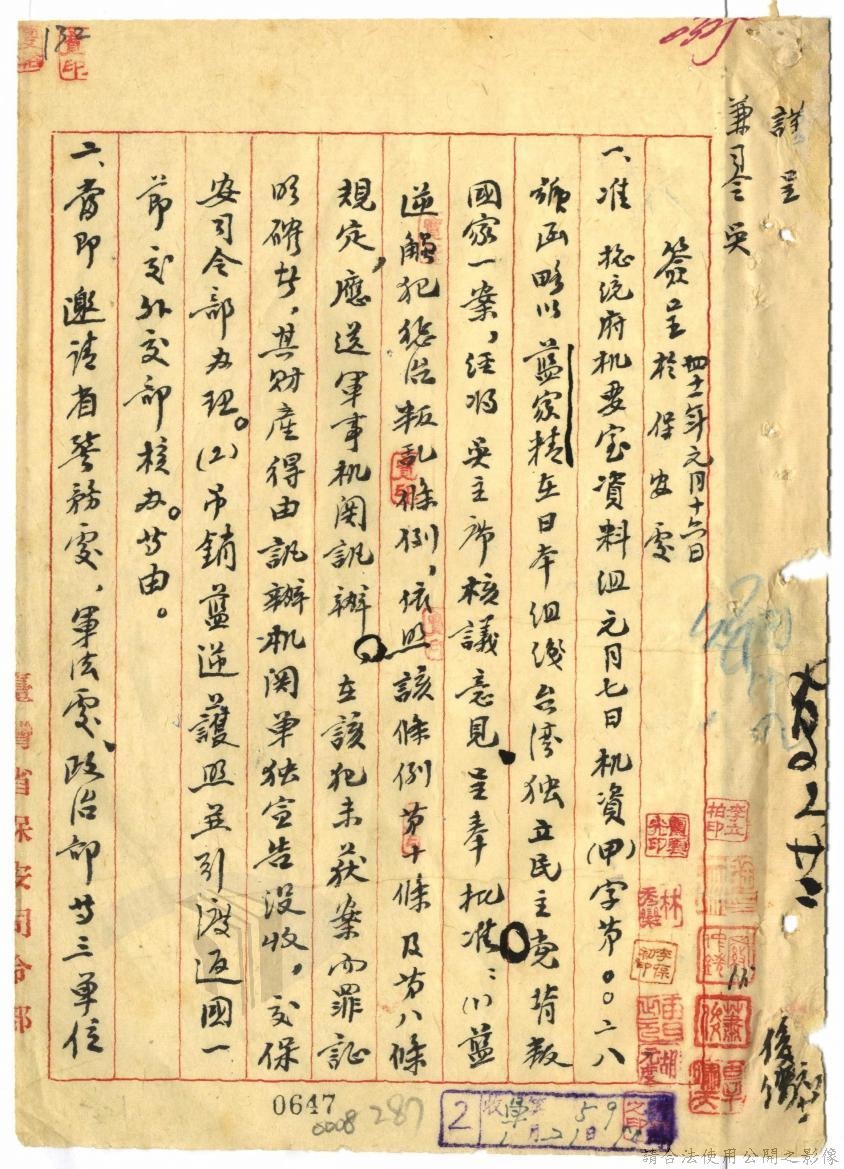 謹呈
兼司令 吳
簽呈 於保安處
四十一年元月十六日
一、准 總統府机要室資料組元月七日机資(甲)字第〇〇二八
號函略以藍家精在日本組織台湾独立民主党背叛
國家一案,経將吳主席核議意見呈奉批准:(1)藍
逆觸犯惩治叛乱條例,依照該條例第十條及第八條
規定,應送軍事机関訊辦。在該犯未获案而罪証
明確者,其財產得由訊辦机関单独宣告没收,交保
安司令部办理。(2)吊銷藍逆護照並引渡返國一
節交外交部核办。等由。
二、當即邀請省警務處、軍法處、政治部等三单位
臺灣省保安司令部
0647
0008
287
132
2
收
請合法使用公開之影像